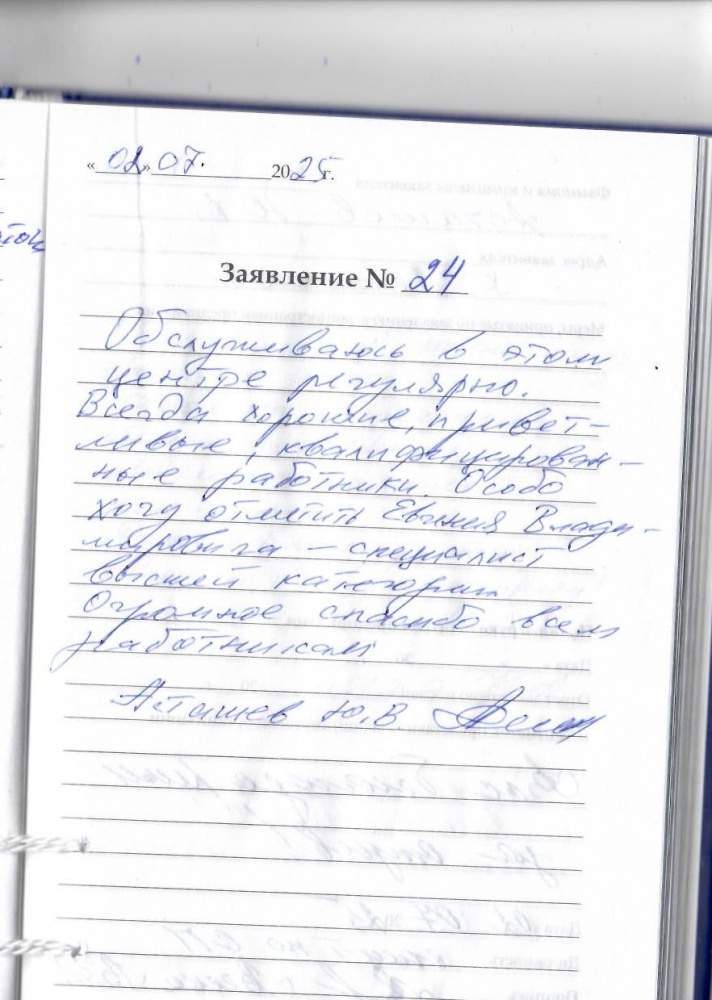 «02» 07. 2025г.
Заявление № 24
Обслуживаюсь в этом
центре регулярно.
Всегда хорошие, привет-
ливые, квалифицирован-
ные работники. Особо
хочу отметить Евгения Влади-
мировича – специалист
высшей категории.
Огромное спасибо всем
работникам
Ю.В.